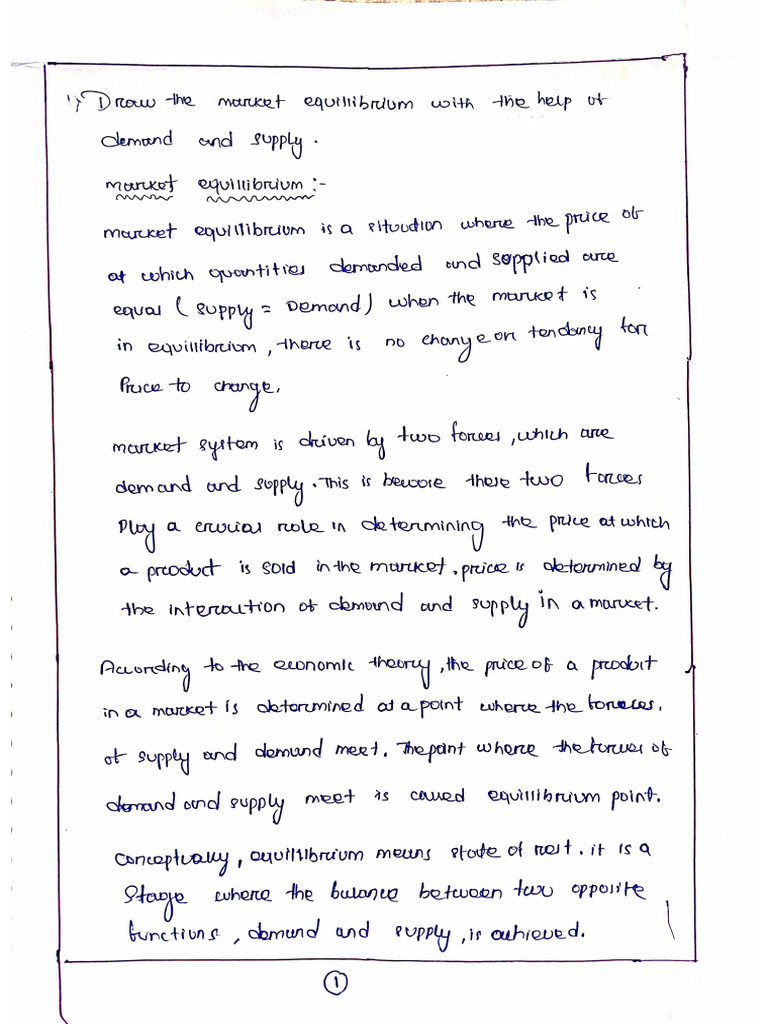 1) Draw the market equillibrium with the help of
demand and supply.
market equillibrium :-
market equillibrium is a situation where the price of
at which quantities demanded and supplied are
equal ( supply = Demand ) when the market is
in equillibrium, there is no change or tendancy for
Price to change.
market system is driven by two forces, which are
demand and supply. This is becose these two forces
Play a crucial role in determining the price at which
a product is sold in the market. price is determined by
the interaction of demand and supply in a market.
According to the economic theory, the price of a product
in a market is determined at a point where the forces.
of supply and demand meet. The point where the forces of
demand and supply meet is called equillibrium point.
Conceptually, equillibrium means state of rest. it is a
Stage where the balance between two opposite
functions, demand and supply, is achieved.
1